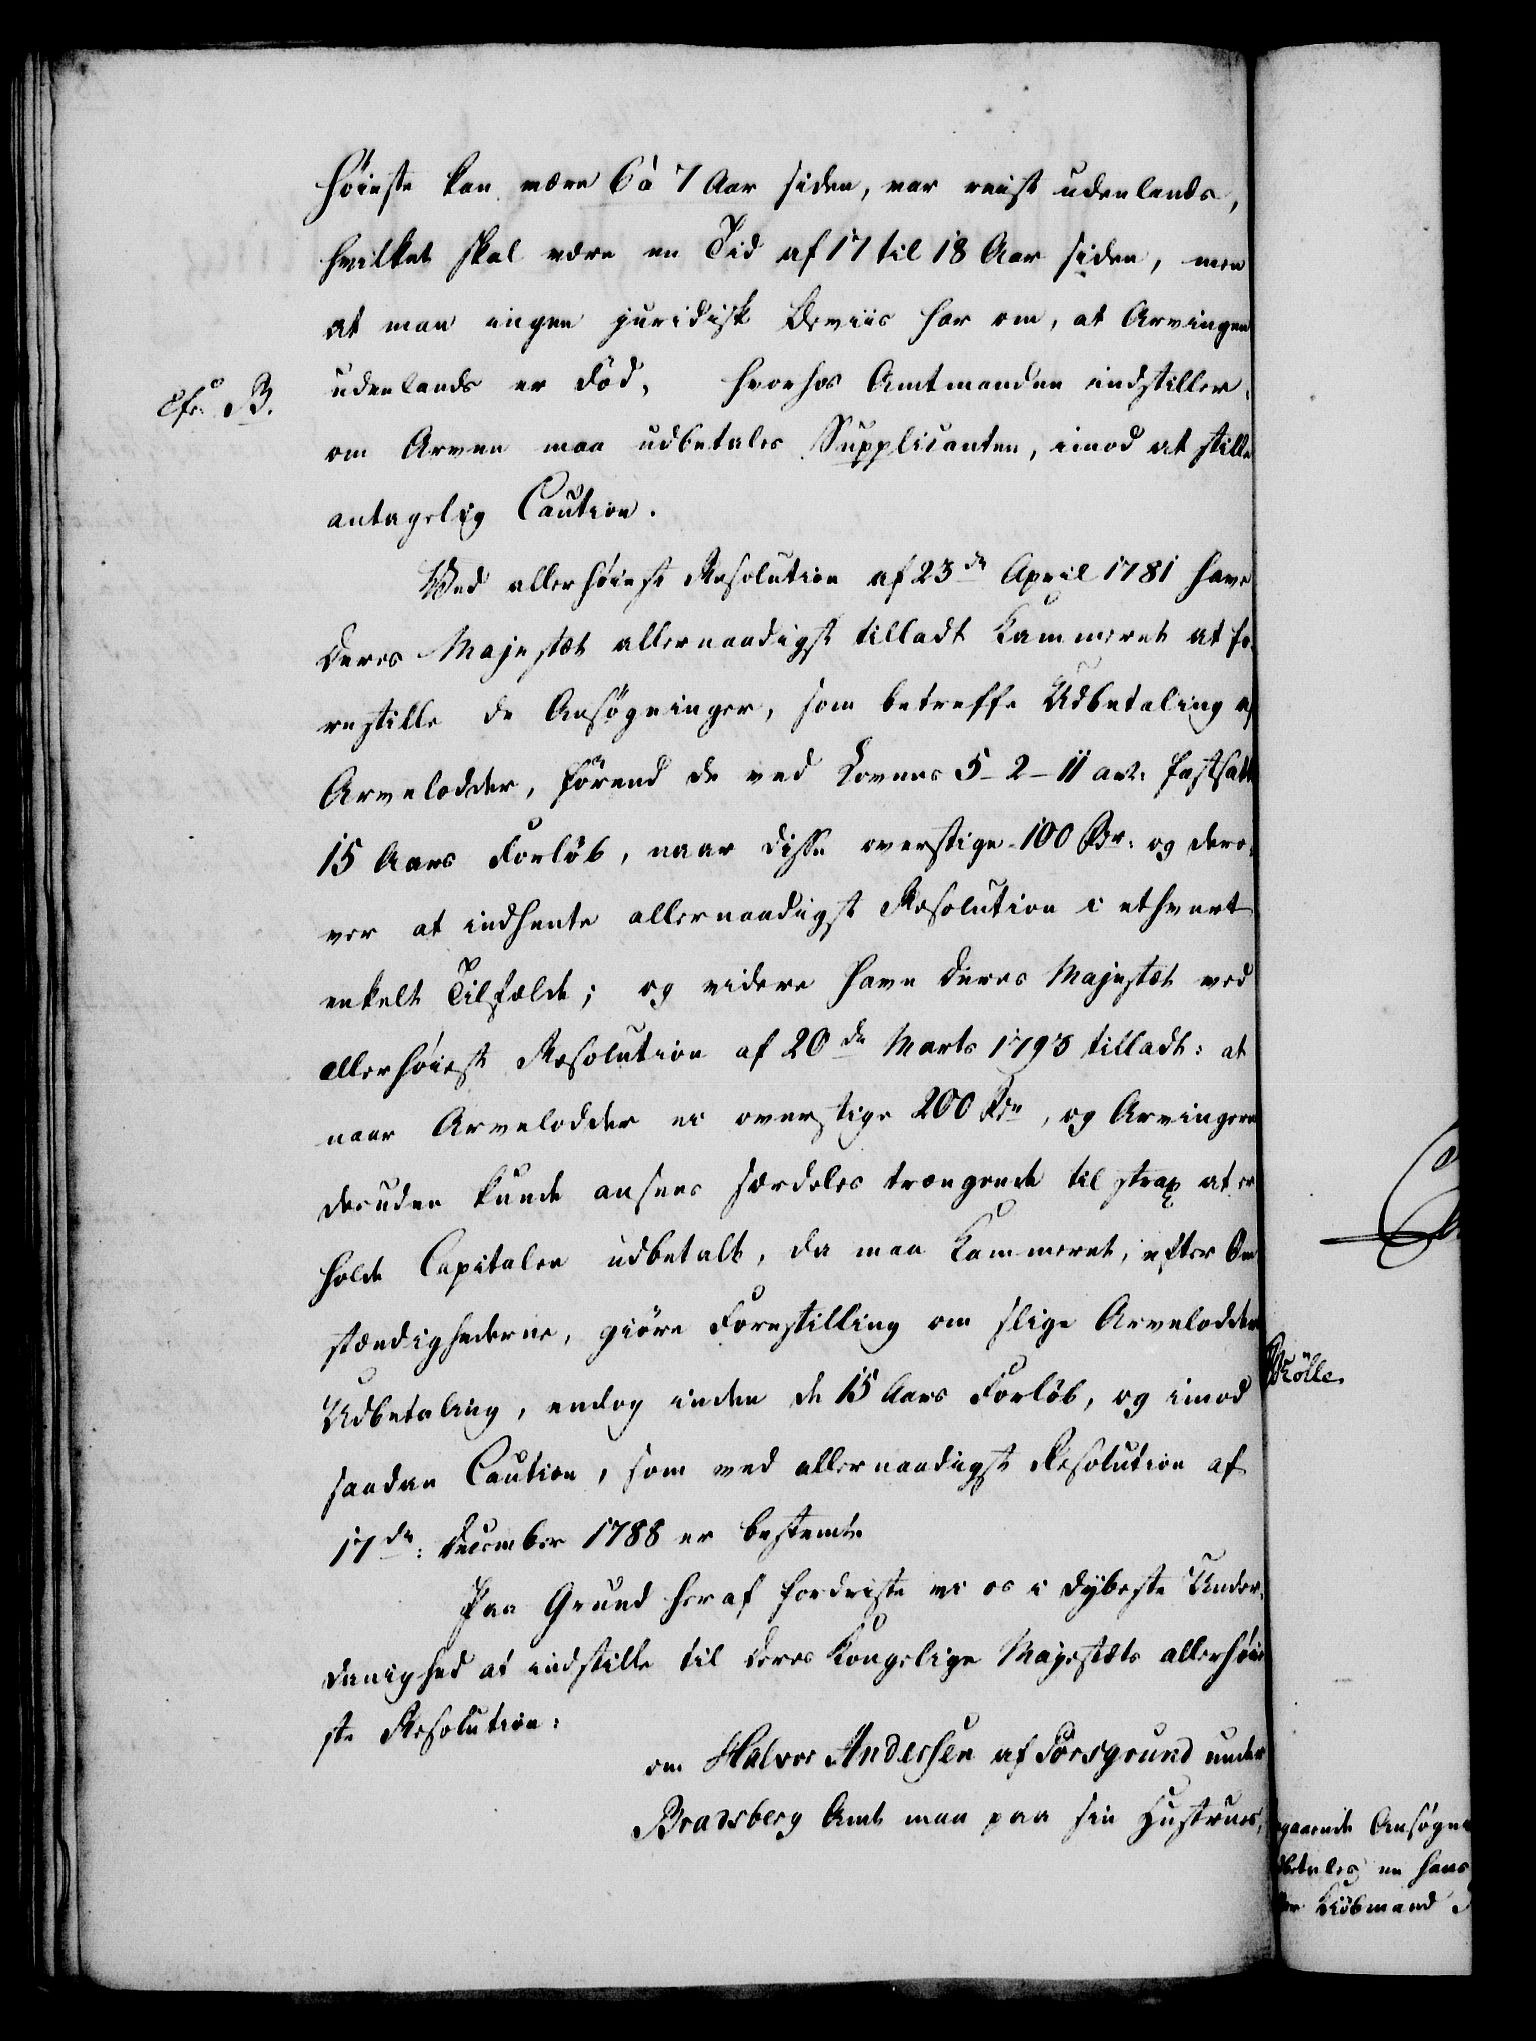 høieste kan være 6 à 7 Aar siden, var reist udenlands,
hvilket skal være en Tid af 17 til 18 Aar siden, men
at man ingen juridisk Beviis har om, at Arvingen
udenlands er død, hvorhos Amtmanden indstiller,
cfr. B.
om Arven maa udbetales Supplicanten, imod at stille
antagelig Caution.
Ved allerhøiest Resolution af 23de April 1781 have
Deres Majestæt allernaadigst tilladt Kammeret at fo-
restille de Ansøgninger, som betreffe Udbetaling af
Arvelodder, førend de ved Lovens 5-2-11 art: fastsatte
15 Aars Forløb, naar disse overstige 100 Rdr: og dero-
ver at indhente allernaadigst Resolution i ethvert
enkelt Tilfælde; og videre have Deres Majestæt ved
allerhøiest Resolution af 20de Marts 1793 tilladt: at
naar Arvelodder ei overstige 200 Rdr, og Arvingerne
desuden kunde ansees særdeles trængende til strax at er-
holde Capitalen udbetalt, da maa Kammeret, efter Om-
stændighederne, giøre Forestilling om slige Arvelodders
Udbetaling, endog inden de 15 Aars Forløb, og imod
saadan Caution, som ved allernaadigst Resolution af
17de: December 1788 er bestemt.
Paa Grund heraf fordriste vi os i dybeste Under-
danighed at indstille til Deres Kongelige Majestæts allerhøie-
ste Resolution:
om Halvor Andersen af Porsgrund under
Bradsberg Amt maa paa sin Hustrues,
Mölle.
gaaende Ansøgn
betales en hans
Kiøbmand